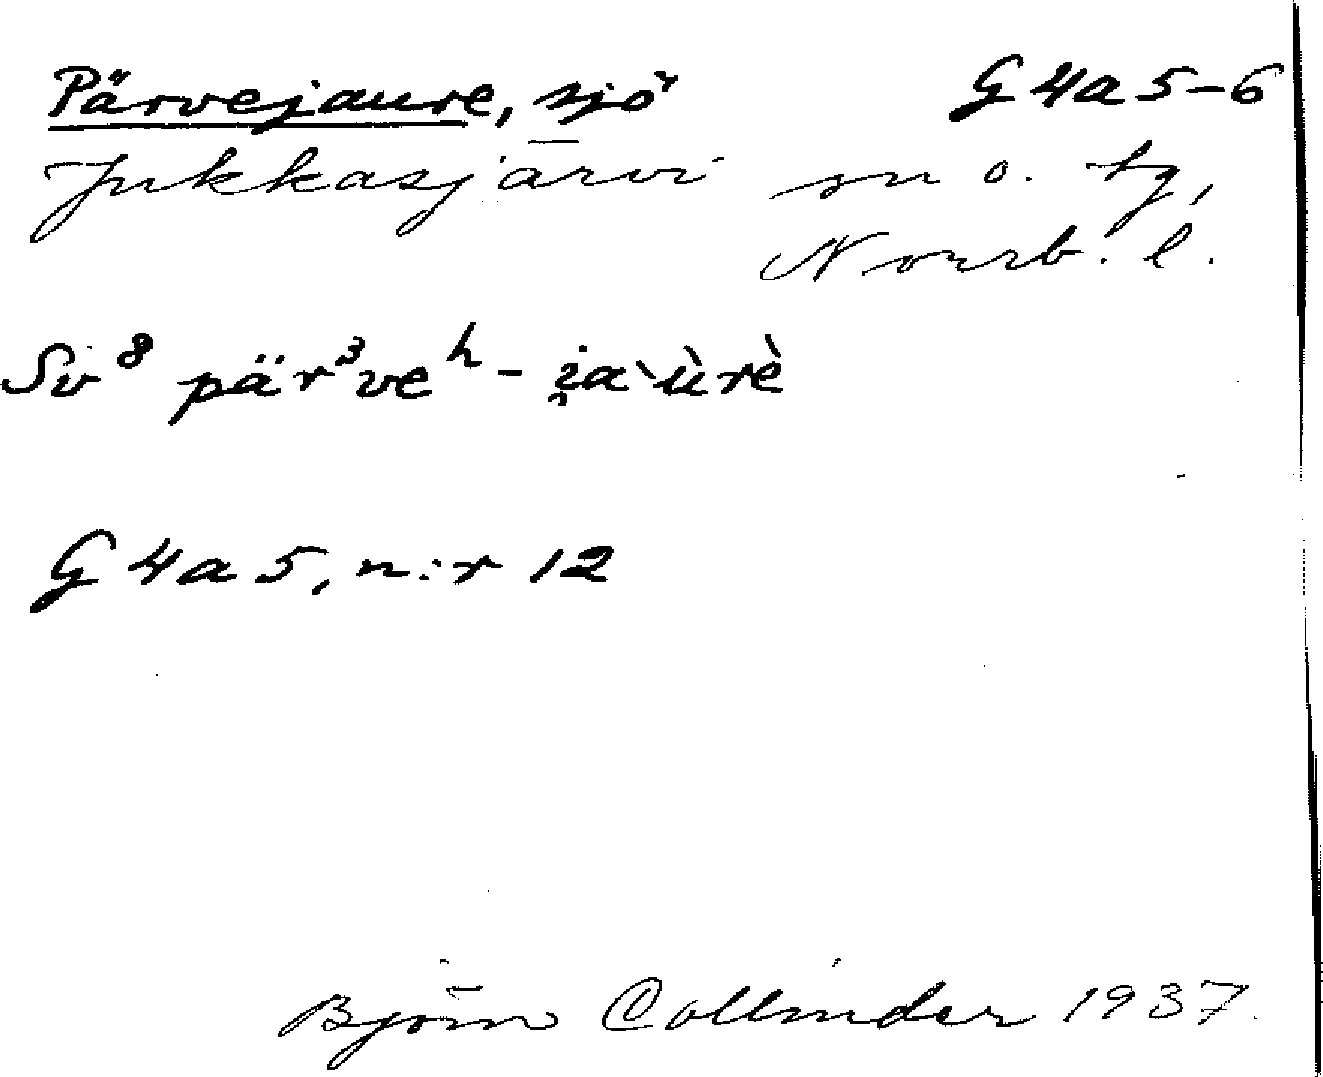 Pärvejaure, sjö G 4a 5-6
Jukkasjärvi sn o. tg,
Norrb. l.
Sv⁸ pär³veʰ - i̯a`ùrè
G 4a 5, n:r 12
Björn Collinder 1937.